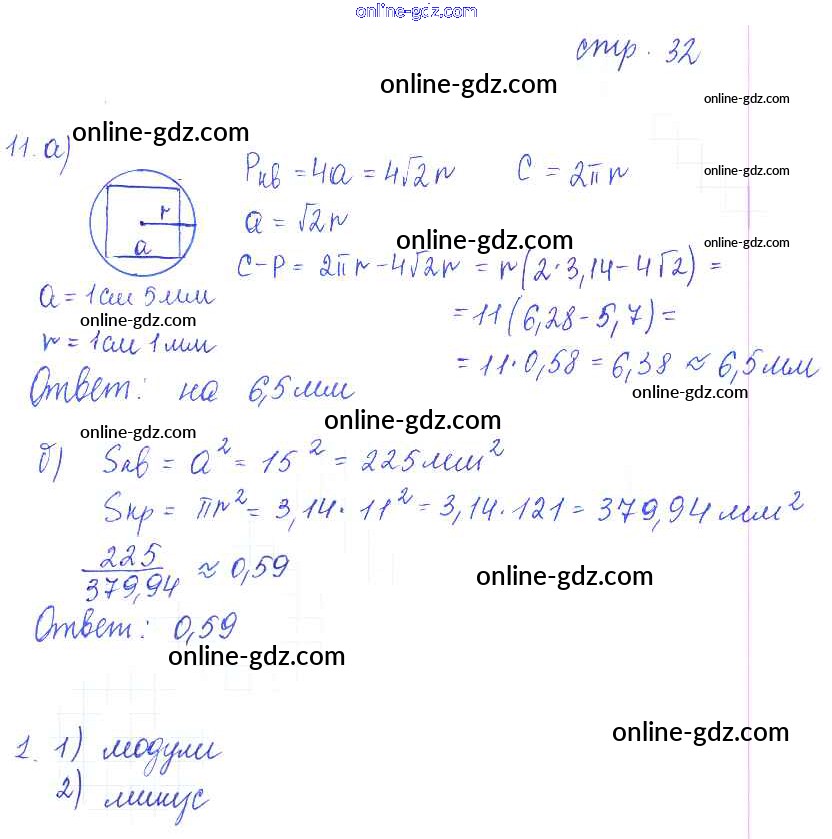 online-gdz.com
стр. 32
online-gdz.com
online-gdz.com
online-gdz.com
11. а)
Pкв = 4a = 4√2r C = 2πr
online-gdz.com
r
a
a = √2r
online-gdz.com
online-gdz.com
C-P = 2πr - 4√2r = r(2·3,14 - 4√2) =
a = 1см 5мм
= 11(6,28 - 5,7) =
online-gdz.com
r = 1см 1мм
= 11·0,58 = 6,38 ≈ 6,5мм
Ответ: на 6,5мм
online-gdz.com
online-gdz.com
online-gdz.com
б) Sкв = a² = 15² = 225мм²
Sкр = πr² = 3,14·11² = 3,14·121 = 379,94мм²
225/379,94 ≈ 0,59
online-gdz.com
Ответ: 0,59
online-gdz.com
online-gdz.com
1. 1) модули
2) минус